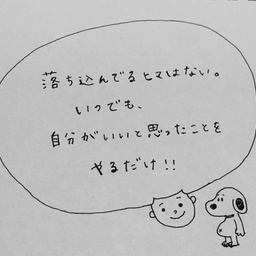 落ち込んでるヒマはない。
いつでも、
自分がいいと思ったことを
やるだけ!!